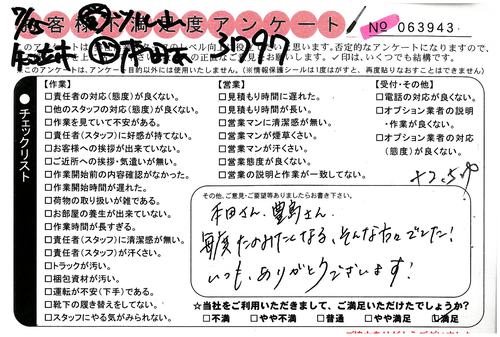 お客様不満足度アンケート
No 063943
37797
【作業】
□責任者の対応(態度)が良くない。
□他のスタッフの対応(態度)が良くない。
□作業を見ていて不安がある。
□責任者(スタッフ)に好感が持てない。
□お客様への挨拶が出来ていない。
□ご近所への挨拶・気遣いが無い。
□作業開始前の内容確認がなかった。
□作業開始時間が遅れた。
□荷物の取り扱いが雑である。
□お部屋の養生が出来ていない。
□作業時間が長すぎる。
□責任者(スタッフ)に清潔感が無い。
□責任者(スタッフ)が汗くさい。
□トラックが汚い。
□梱包資材が汚い。
□運転が安全(下手)である。
□靴下の履き替えをしてない。
□スタッフにやる気がみられない。
チェックリスト
【営業】
□見積もり時間に遅れた。
□見積もり時間が長い。
□営業マンに清潔感が無い。
□営業マンが煙草くさい。
□営業マンが汗くさい。
□営業態度が良くない。
□営業の説明と作業が一致してない。
【受付・その他】
□電話の対応が良くない。
□オプション業者の説明
・作業が良くない。
□オプション業者の対応
(態度)が良くない。
その他、ご意見・ご要望等ありましたらお書き下さい。
和田さん、豊島さん
毎度たのみたくなる、そんな方々でした!
いつも、ありがとうございます!
☆当社をご利用いただきまして、ご満足いただけたでしょうか?
□不満 □やや不満 □普通 □やや満足 □満足